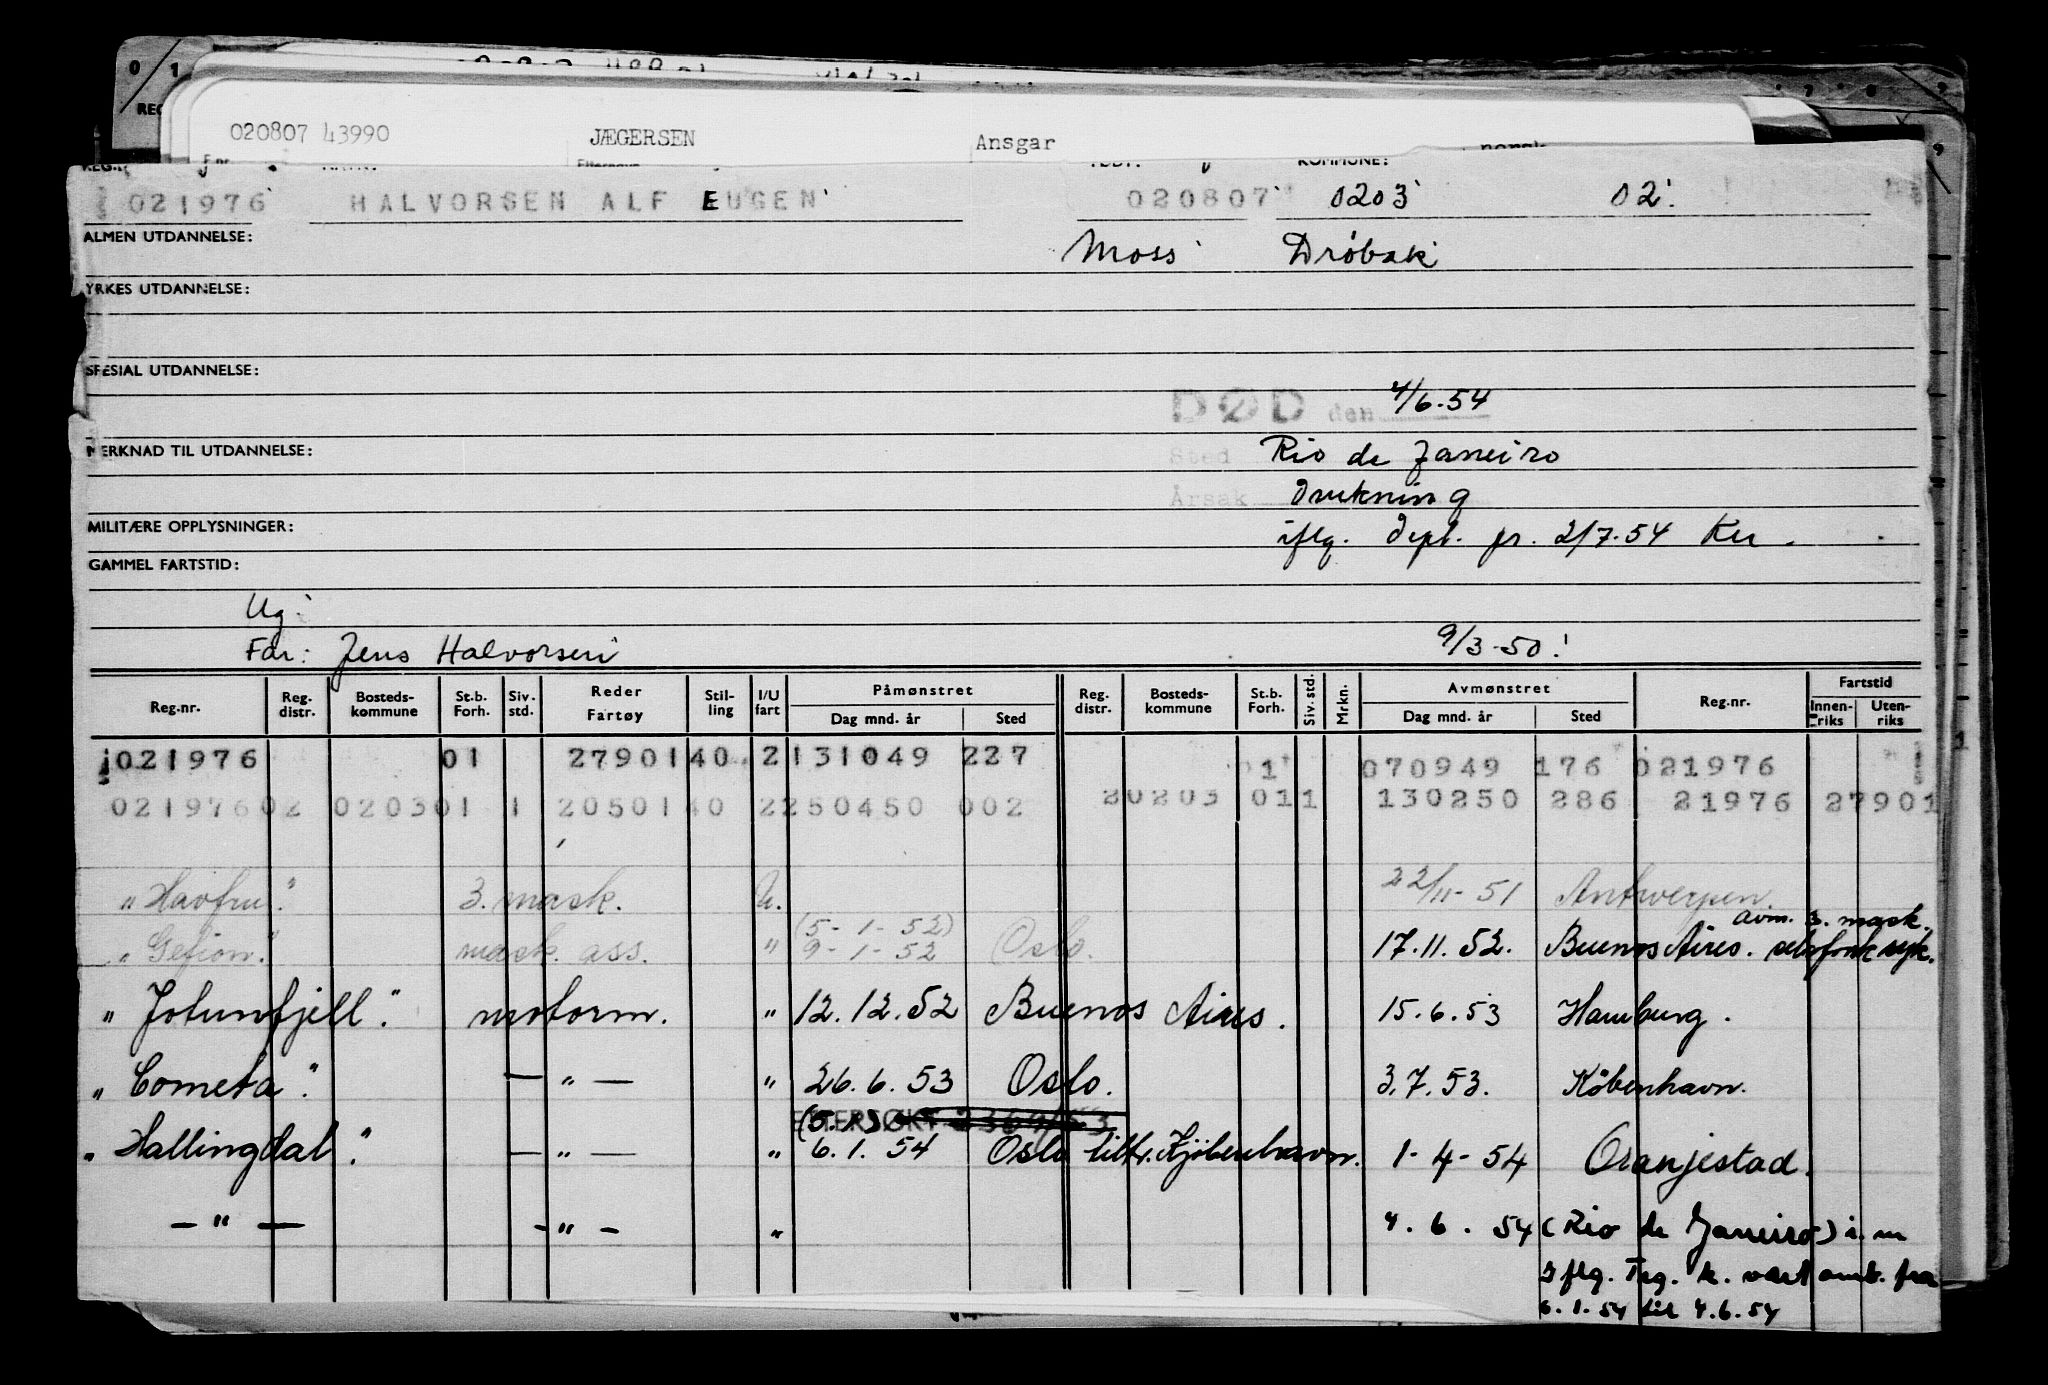 020807 43990 JÆGERSEN Ansgar
021976 HALVORSEN ALF EUGEN 020807 0203 02
ALMEN UTDANNELSE: Moss Drøbak
YRKES UTDANNELSE:
SPESIAL UTDANNELSE:
DØD den 4/6.54
MERKNAD TIL UTDANNELSE: Sted Rio de Janeiro
Årsak drukning
MILITÆRE OPPLYSNINGER: iflg. dept. pr. 2/7.54 Ku.
GAMMEL FARTSTID:
Ug.
Far: Jens Halvorsen 9/3-50!
Reg.nr. Reg. distr. Bosteds-kommune St.b. Forh. Siv. std. Reder Fartøy Stil-ling I/U fart Påmønstret Dag mnd. år Sted Reg. distr. Bosteds-kommune St.b. Forh. Siv. std. Mrkn. Avmønstret Dag mnd. år Sted Reg.nr. Fartstid Innen-riks Uten-riks
021976 01 2790140 2 131049 227 1 070949 176 021976
021976 02 0203 01 1 2050140 2 250450 002 20203 011 130250 286 21976 27901
"Havfru". 3. mask. U. 22/11-51 Antwerpen.
(5-1-52) avm. 3. mask.
"Gefion." mask. ass. " 9-1-52 Oslo. 17.11.52. Buenos Aires.
"Jotunfjell". motorm. " 12.12.52 Buenos Aires. 15.6.53 Hamburg.
"Cometa". — " — " 26.6.53 Oslo. 3.7.53. København.
"Hallingdal". — " — " 6.1.54 Oslo tiltr. Kjøbenhavn. 1-4-54 Oranjestad.
— " — — " — " 4.6.54 (Rio de Janeiro) i.m
Iflg. Trg. k. vært omb. fra
6.1.54 til 4.6.54